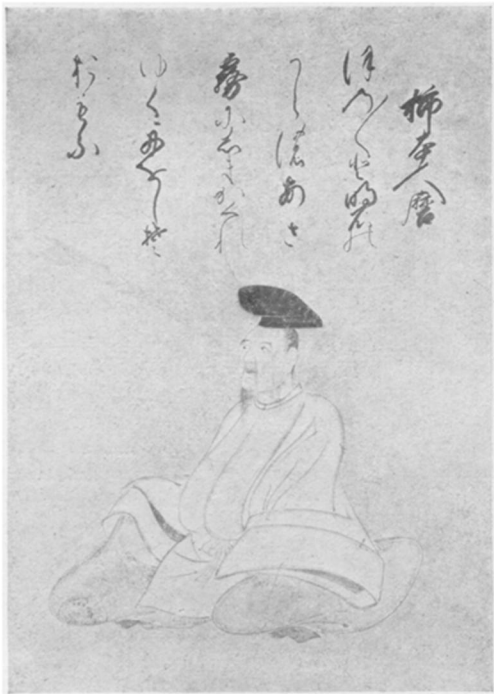 柿本人麿
ほの〱と明石の
うらのあさ
霧にしまかくれ
ゆく舟をしそ
おもふ